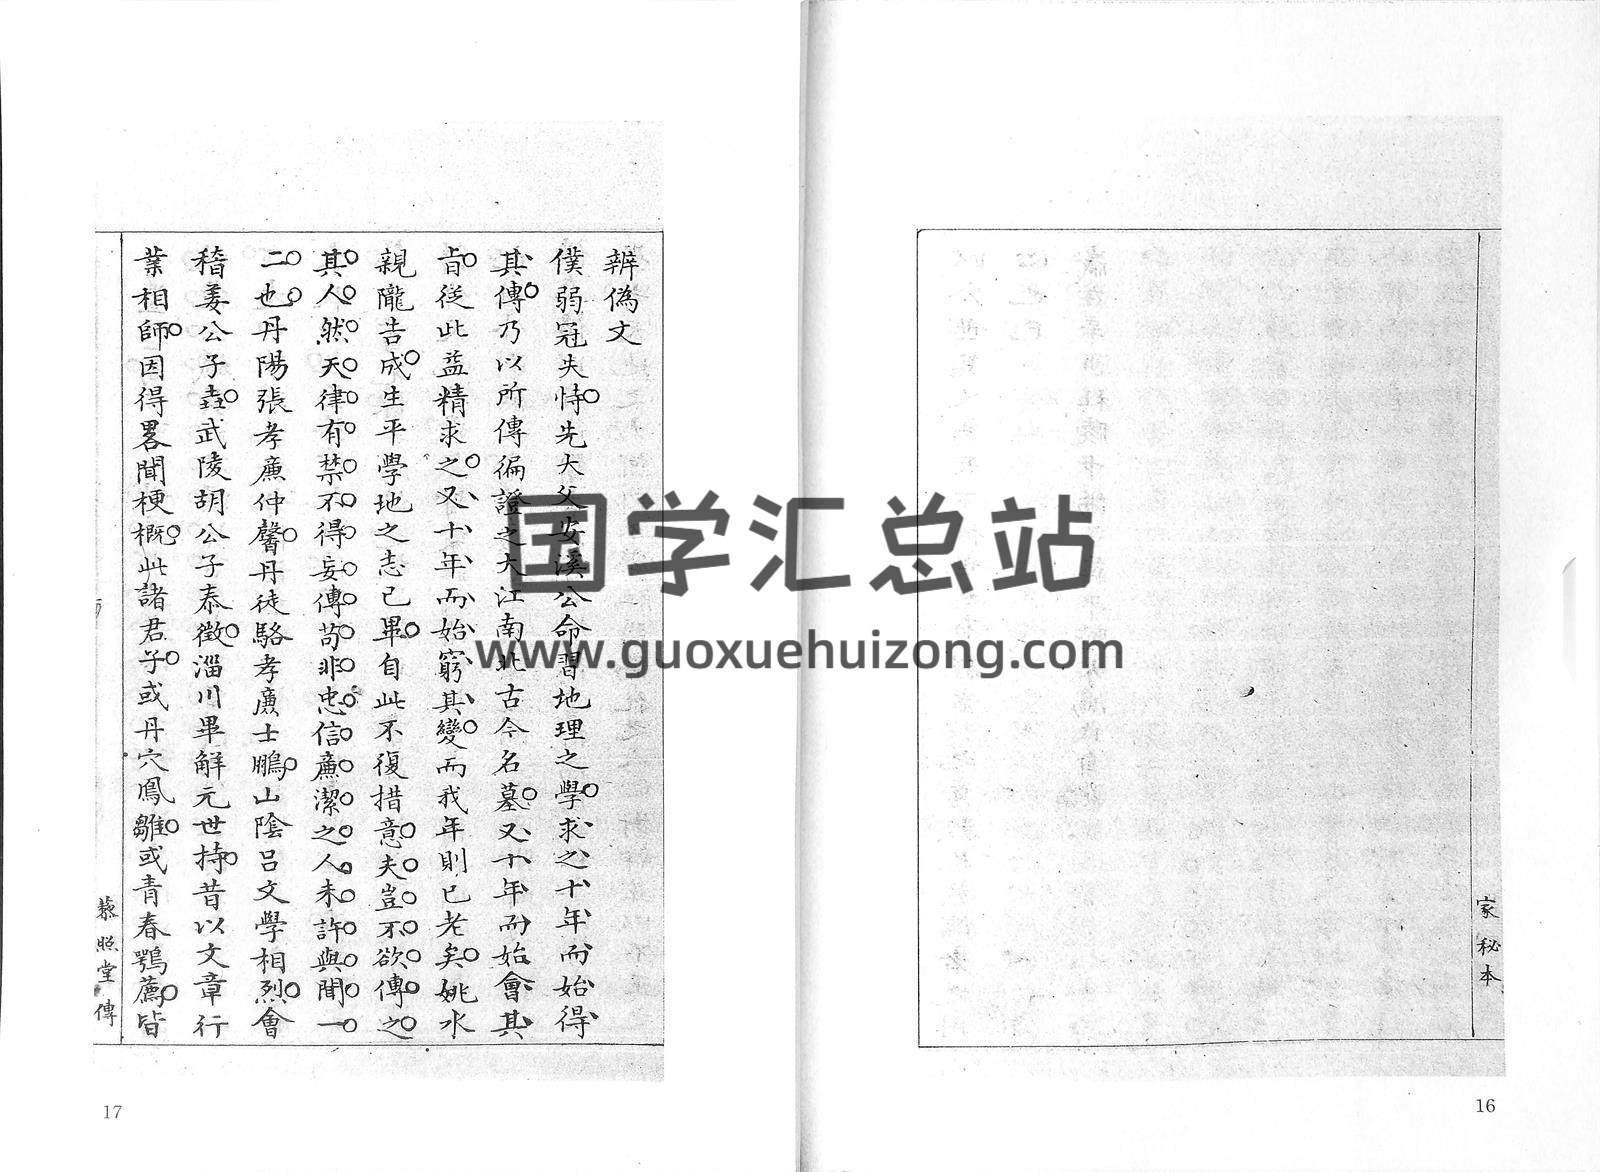 家秘本
16
辨偽文
僕弱冠失恃先大父安溪公命習地理之學求之十年而始得
其傳乃以所傳徧證之大江南北古今名墓又十年而始會其
旨從此益精求之又十年而始窮其變而我年則已老矣姚水
親隴告成生平學地之志已畢自此不復措意夫豈不欲傳之
其人然天律有禁不得妄傳苟非忠信廉潔之人未許與聞一
二也丹陽張孝廉仲馨丹徒駱孝廉士鵬山陰呂文學相烈會
稽姜公子垚武陵胡公子泰徵淄川畢解元世持昔以文章行
業相師因得畧聞梗概此諸君子或丹穴鳳雛或青春鶚薦皆
照堂傳
17
国学汇总站
www.guoxuehuizong.com